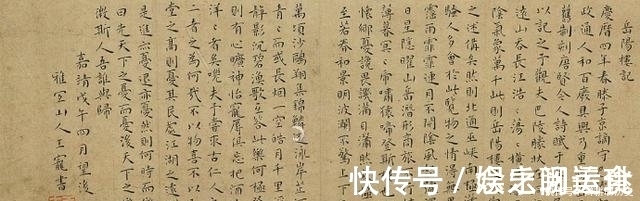 岳陽樓記
慶曆四年春滕子京謫守
政通人和百廢具興乃重
舊制刻唐賢今人詩賦于
以記之予觀夫巴陵勝狀
遠山吞長江浩浩湯湯橫
陰氣象萬千此則岳陽樓
之述備矣然則北通巫峽南
騷人多會於此覽物之情得
霪雨霏霏連月不開陰風
日星隱曜山岳潛形商旅
冥冥虎嘯猿啼登斯
懷鄉憂讒畏譏滿目蕭然
至若春和景明波瀾不驚上下
萬頃沙鷗翔集錦鱗游泳岸芷
青青而或長烟一空皓月千里
靜影沉璧漁歌互答此樂何極
則有心曠神怡寵辱俱忘把酒
洋洋者矣嗟夫予嘗求古仁人
二者之為何哉不以物喜不以
堂之高則憂其民處江湖之遠
是進亦憂退亦憂然則何時而
曰先天下之憂而憂後天下之
微斯人吾誰與歸
嘉靖戊午四月望後
雅宜山人王寵書
快传号 /